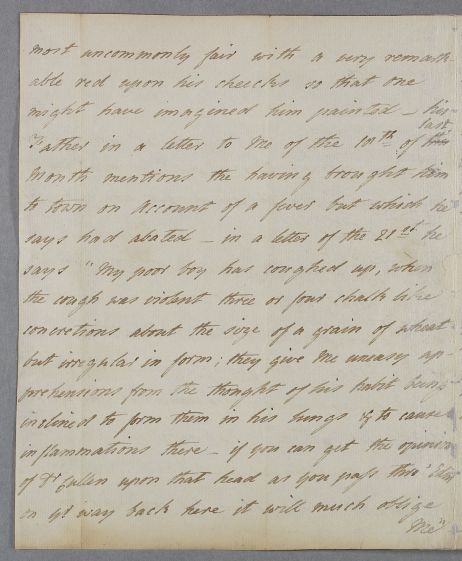 most uncommonly fair with a very remark-
able red upon his cheeks so that one
might have imagined him painted – his
Father in a letter to me of the 10th of last
Month mentions the having brought him
to town on Account of a fever but which he
says had abated – in a letter of the 21st he
says "My poor boy has coughed up, when
the cough was violent three or four chalk like
concretions about the size of a grain of wheat
but irregular in form; they give me uneasy ap-
prehensions from the thought of his habit being
inclined to form them in his lungs & to cause
inflammations there – if you can get the opinion
of Dr Cullen upon that head as you pass thro'
on yr way back here it will much oblige
Me"